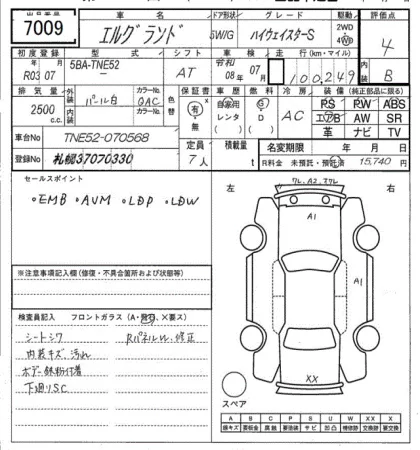 出品番号 車名 ドア形状 グレード 駆動 評価点
7009 エルグランド 5W/G ハイウェイスターS 2WD 4WD 4
初度登録 型式 シフト 車検 走行(km・マイル) 内装
R03年07月 5BA-TNE52 AT 令和08年07月 100,249 B
排気量 外装 色 カラーNo. 色替 保証書 車歴 燃料 冷房 装備(純正部品に限る)
2500c.c. パール白 QAC 有・無 自家用 レンタ G D AC PS PW ABS
内装 色 カラーNo. エアB AW SR
車台No TNE52-070568 革 ナビ TV
定員 積載量 名変期限 年 月 日
登録No 札幌37070330 7人 t R料金 未預託・預託済 15,740円
セールスポイント
・EMB ・AVM ・LDP ・LDW
左 右
ワレ、A2、スリキ
A1
A1
XX
※注意事項記入欄(修復・不具合箇所および状態等)
検査員記入 フロントガラス(A・飛石・X要ス)
シートシワ RパネルW、修正
内装キズ、汚れ
ボデー鉄粉付着
下廻りS.C
スペア
A B C P S U W X XX
線キズ 要板金 腐蝕 要塗装 サビ 凹凸 補修跡 要交換 交換済